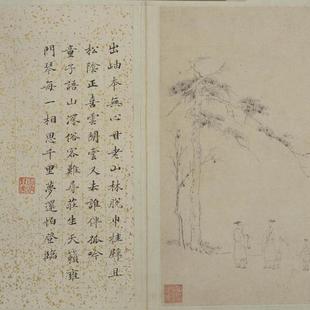 出岫本無心甘老山林脫巾挂壁且
松陰正喜雲閒雲又去誰伴孤吟
童子語山深俗客難尋莊生天籟雍
門琴每一相思千里夢還怕登臨